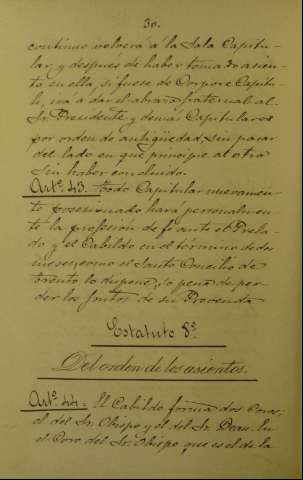 30.
continuo volverá á la Sala Capitu-
lar, y después de haber tomado asien-
to en ella, si fuese de Corpore Capitu-
li, irá a dar el abrazo fraternal al
Sr. Presidente y demás Capitulares
por orden de antigüedad, sin pasar
del lado en que principie al otro
sin haber concluido.
Artº 43. Todo Capitular nuevamen-
te posesionado hará personalmen-
te la profesión de fe ante el Prela-
do y el Cabildo en el término de dos
meses, como el Santo Concilio de
Trento lo dispone, so pena de per-
der los frutos de su Prevenda
Estatuto 8º
Del orden de los asientos.
Artº 44. El Cabildo forma dos Coros:
el del Sr. Obispo y el del Sr. Dean. En
el Coro del Sr. Obispo que es el de la